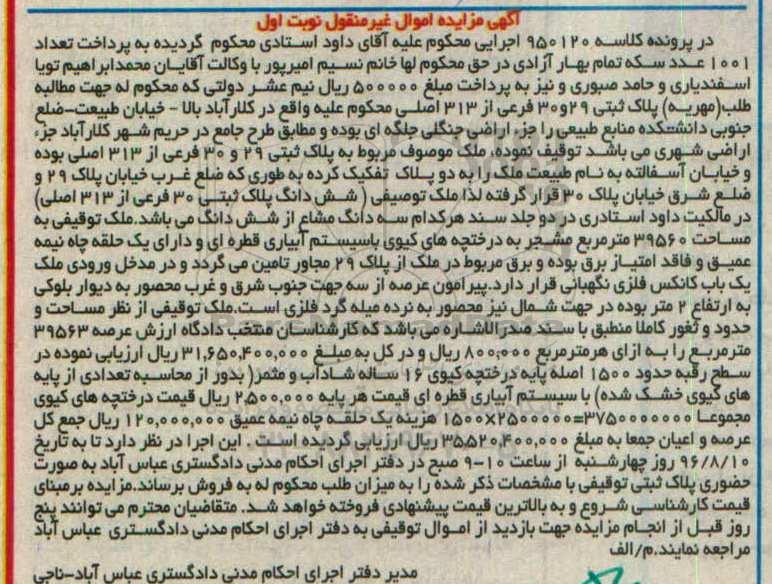 آگهی مزایده اموال غیرمنقول نوبت اول
در پرونده کلاسه ۹۵۰۱۲۰ اجرایی محکوم علیه آقای داود استادی محکوم گردیده به پرداخت تعداد
۱۰۰۱ عدد سکه تمام بهار آزادی در حق محکوم لها خانم نسیم امیرپور با وکالت آقایان محمدابراهیم تویا
اسفندیاری و حامد صبوری و نیز به پرداخت مبلغ ۵۰۰۰۰۰ ریال نیم عشر دولتی که محکوم له جهت مطالبه
طلب(مهریه) پلاک ثبتی ۲۹و۳۰ فرعی از ۳۱۳ اصلی محکوم علیه واقع در کلارآباد بالا - خیابان طبیعت-ضلع
جنوبی دانشکده منابع طبیعی را جزء اراضی جنگلی جلگه ای بوده و مطابق طرح جامع در حریم شهر کلارآباد جزء
اراضی شهری می باشد توقیف نموده، ملک موصوف مربوط به پلاک ثبتی ۲۹ و ۳۰ فرعی از ۳۱۳ اصلی بوده
و خیابان آسفالته به نام طبیعت ملک را به دو پلاک تفکیک کرده به طوری که ضلع غرب خیابان پلاک ۲۹ و
ضلع شرق خیابان پلاک ۳۰ قرار گرفته لذا ملک توصیفی ( شش دانگ پلاک ثبتی ۳۰ فرعی از ۳۱۳ اصلی)
در مالکیت داود استادری در دو جلد سند هرکدام سه دانگ مشاع از شش دانگ می باشد.ملک توقیفی به
مساحت ۳۹۵۶۰ مترمربع مشجر به درختچه های کیوی باسیستم آبیاری قطره ای و دارای یک حلقه چاه نیمه
عمیق و فاقد امتیاز برق بوده و برق مربوط در ملک از پلاک ۲۹ مجاور تامین می گردد و در مدخل ورودی ملک
یک باب کانکس فلزی نگهبانی قرار دارد.پیرامون عرصه از سه جهت جنوب شرق و غرب محصور به دیوار بلوکی
به ارتفاع ۲ متر بوده در جهت شمال نیز محصور به نرده میله گرد فلزی است.ملک توقیفی از نظر مساحت و
حدود و ثغور کاملا منطبق با سند صدرالاشاره می باشد که کارشناسان منتخب دادگاه ارزش عرصه ۳۹۵۶۳
مترمربع را به ازای هرمترمربع ۸۰۰,۰۰۰ ریال و در کل به مبلغ ۳۱,۶۵۰,۴۰۰,۰۰۰ ریال ارزیابی نموده در
سطح رقبه حدود ۱۵۰۰ اصله پایه درختچه کیوی ۱۶ ساله شاداب و مثمر( بدور از محاسبه تعدادی از پایه
های کیوی خشک شده) با سیستم آبیاری قطره ای قیمت هر پایه ۲,۵۰۰,۰۰۰ ریال قیمت درختچه های کیوی
مجموعا ۳۷۵۰۰۰۰۰۰۰=۲۵۰۰۰۰۰×۱۵۰۰ هزینه یک حلقه چاه نیمه عمیق ۱۲۰,۰۰۰,۰۰۰ ریال جمع کل
عرصه و اعیان جمعا به مبلغ ۳۵,۵۲۰,۴۰۰,۰۰۰ ریال ارزیابی گردیده است . این اجرا در نظر دارد تا به تاریخ
۹۶/۸/۱۰ روز چهارشنبه از ساعت ۱۰-۹ صبح در دفتر اجرای احکام مدنی دادگستری عباس آباد به صورت
حضوری پلاک ثبتی توقیفی با مشخصات ذکر شده را به میزان طلب محکوم له به فروش برساند.مزایده برمبنای
قیمت کارشناسی شروع و به بالاترین قیمت پیشنهادی فروخته خواهد شد. متقاضیان محترم می توانند پنج
روز قبل از انجام مزایده جهت بازدید از اموال توقیفی به دفتر اجرای احکام مدنی دادگستری عباس آباد
مراجعه نمایند.م/الف
مدیر دفتر اجرای احکام مدنی دادگستری عباس آباد-ناجی